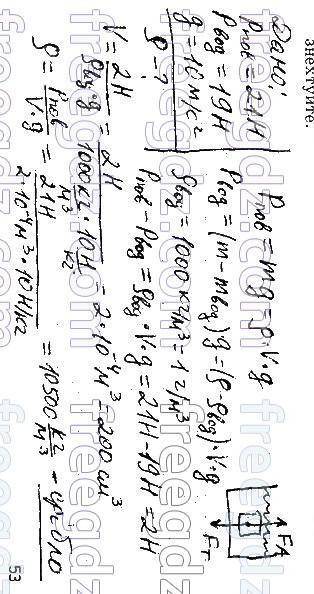 знехтуйте.
Дано:
Pпов = 21Н
Pвод = 19Н
g = 10 м/с²
ρ - ?
Pпов = mg = ρ·V·g
Pвод = (m - mвод)g = (ρ - ρвод)·V·g
ρвод = 1000 кг/м³ = 1 г/м³
Pпов - Pвод = ρвод·V·g = 21Н - 19Н = 2Н
V = 2Н / ρвод·g = 2Н / 1000 кг/м³ · 10 Н/кг = 2·10⁻⁴ м³ = 200 см³
ρ = Pпов / V·g = 21Н / 2·10⁻⁴ м³ · 10 Н/кг = 10500 кг/м³ - срібло
FA
FT
53
freegdz.com